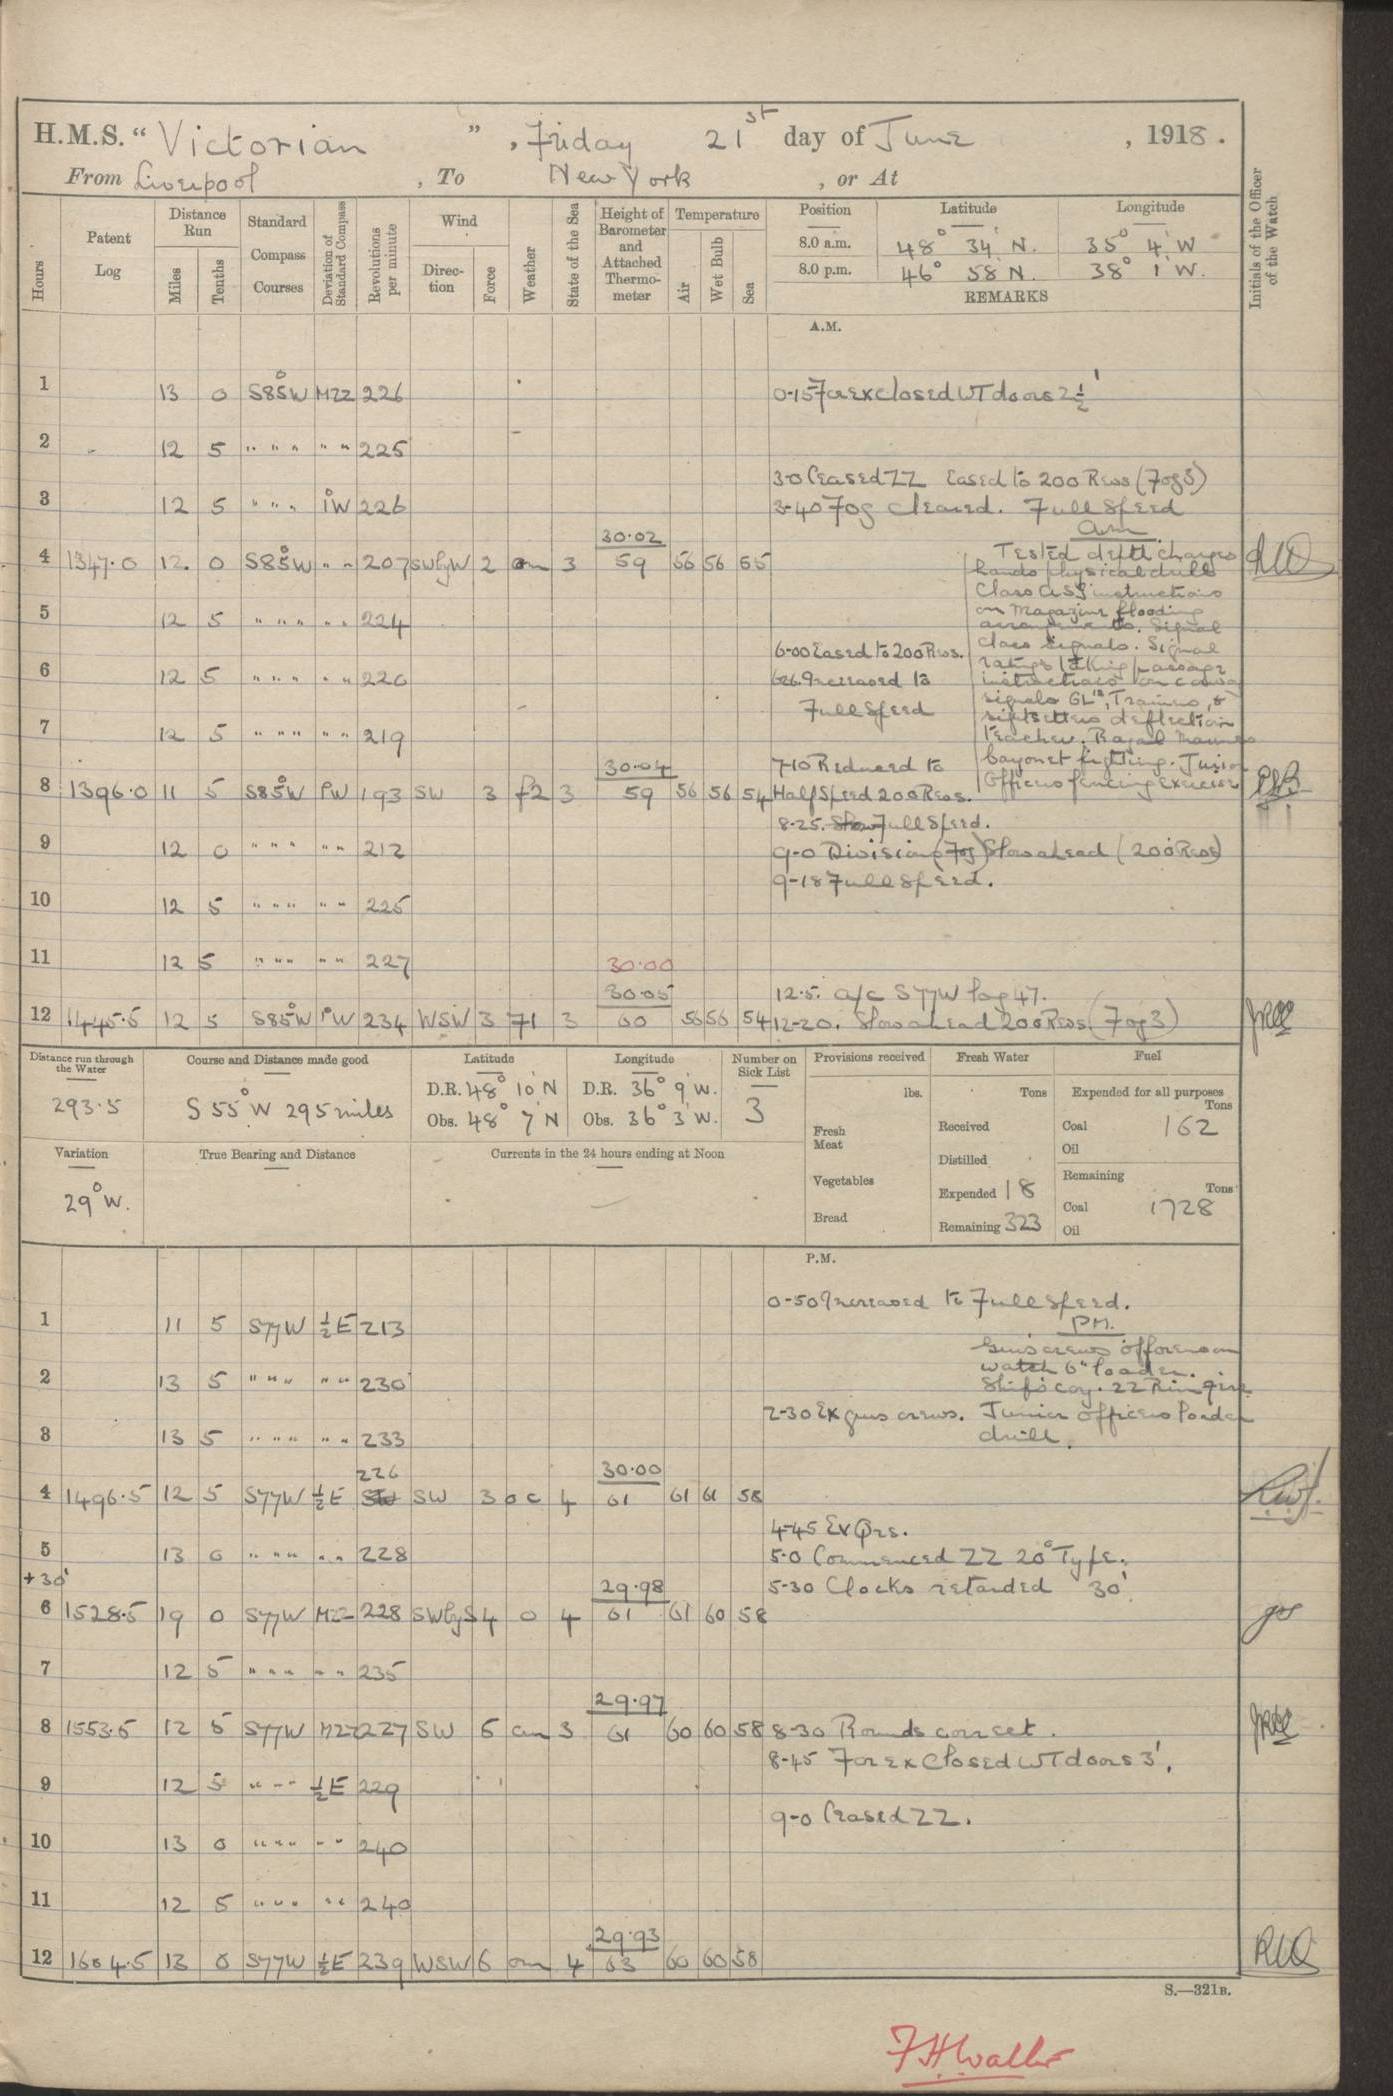 H.M.S. "Victorian", Friday 21st day of June, 1918.
From Liverpool, To New York, or At
Hours
Patent Log
Distance Run
Miles
Tenths
Standard Compass Courses
Deviation of Standard Compass
Revolutions per minute
Wind
Direction
Force
Weather
State of the Sea
Height of Barometer and Attached Thermometer
Temperature
Air
Wet Bulb
Sea
Position Latitude Longitude
8.0 a.m. 48° 34' N. 35° 4' W
8.0 p.m. 46° 58' N. 38° 1' W.
REMARKS
Initials of the Officer of the Watch
A.M.
1 13 0 S85°W MZZ 226 0-15 For ex closed WT doors 2½'
2 12 5 " " " " " 225
3-0 Ceased ZZ Eased to 200 Revs (Fog 3)
3 12 5 " " " 1°W 226 3-40 Fog cleared. Full Speed
30.02
4 1347.0 12 0 S85°W " " 207 SWbyW 2 om 3 59 56 56 55
am
Tested depth charges
hands physical drill
Class
instructions
on Magazine flooding
arrangements. Signal
class signals. Signal
ratings taking passage
instructions on convoy
signals GLrs, Trainers, &
sightsetters deflection
teacher. Royal Marines
bayonet fighting. Junior
Officers fencing exercise
5 12 5 " " " " " 224
6-00 Eased to 200 Revs.
6 12 5 " " " " " 220 Increased to
Full Speed
7 12 5 " " " " " 219
30.04 7-10 Reduced to
8 1396.0 11 5 S85°W 1°W 193 SW 3 f2 3 59 56 56 54 Half Speed 200 Revs.
8-25. Slow Full Speed.
9 12 0 " " " " " 212 9-0 Division (Fog) Slow ahead (200 Revs)
9-18 Full Speed.
10 12 5 " " " " " 225
11 12 5 " " " " " 227 30.00
30.05 12.5. a/c S77W log 47.
12 1445.5 12 5 S85°W 1°W 234 WSW 3 71 3 60 56 56 54 12-20. Slow ahead 200 Revs (Fog 3)
Distance run through the Water
293.5
Course and Distance made good
S 55° W 295 miles
Latitude
D.R. 48° 10' N
Obs. 48° 7' N
Longitude
D.R. 36° 9' W.
Obs. 36° 3' W.
Number on Sick List
3
Provisions received
lbs.
Fresh Meat
Vegetables
Bread
Fresh Water
Tons
Received
Distilled
Expended 18
Remaining 323
Fuel
Expended for all purposes
Tons
Coal 162
Oil
Remaining
Tons
Coal 1728
Oil
Variation
29° W.
True Bearing and Distance
Currents in the 24 hours ending at Noon
P.M.
0-50 Increased to Full Speed.
1 11 5 S77W ½E 213
PM.
Guns crews of forenoon
watch 6" loader.
Ships coy. 22 Rim fire
2 13 5 " " " " " 230
2-30 Ex guns crews. Junior Officers loader
drill.
3 13 5 " " " " " 233
226 30.00
4 1496.5 12 5 S77W ½E SW 3 oc 4 61 61 61 58
4-45 Ex Qrs.
5 13 0 " " " " " 228 5-0 Commenced ZZ 20° Type.
+30' 29.98 5-30 Clocks retarded 30'
6 1528.5 19 0 S77W MZZ 228 SWbyS 4 o 4 61 61 60 58
7 12 5 " " " " " 235
29.97
8 1553.5 12 5 S77W MZZ 227 SW 5 om 3 61 60 60 58 8-30 Rounds correct.
8-45 For ex closed WT doors 3'.
9 12 5 " " " ½E 229
9-0 Ceased ZZ.
10 13 0 " " " " " 240
11 12 5 " " " " " 240
29.93
12 1604.5 13 0 S77W ½E 239 WSW 6 om 4 63 60 60 58
S.—321B.
F H Waller